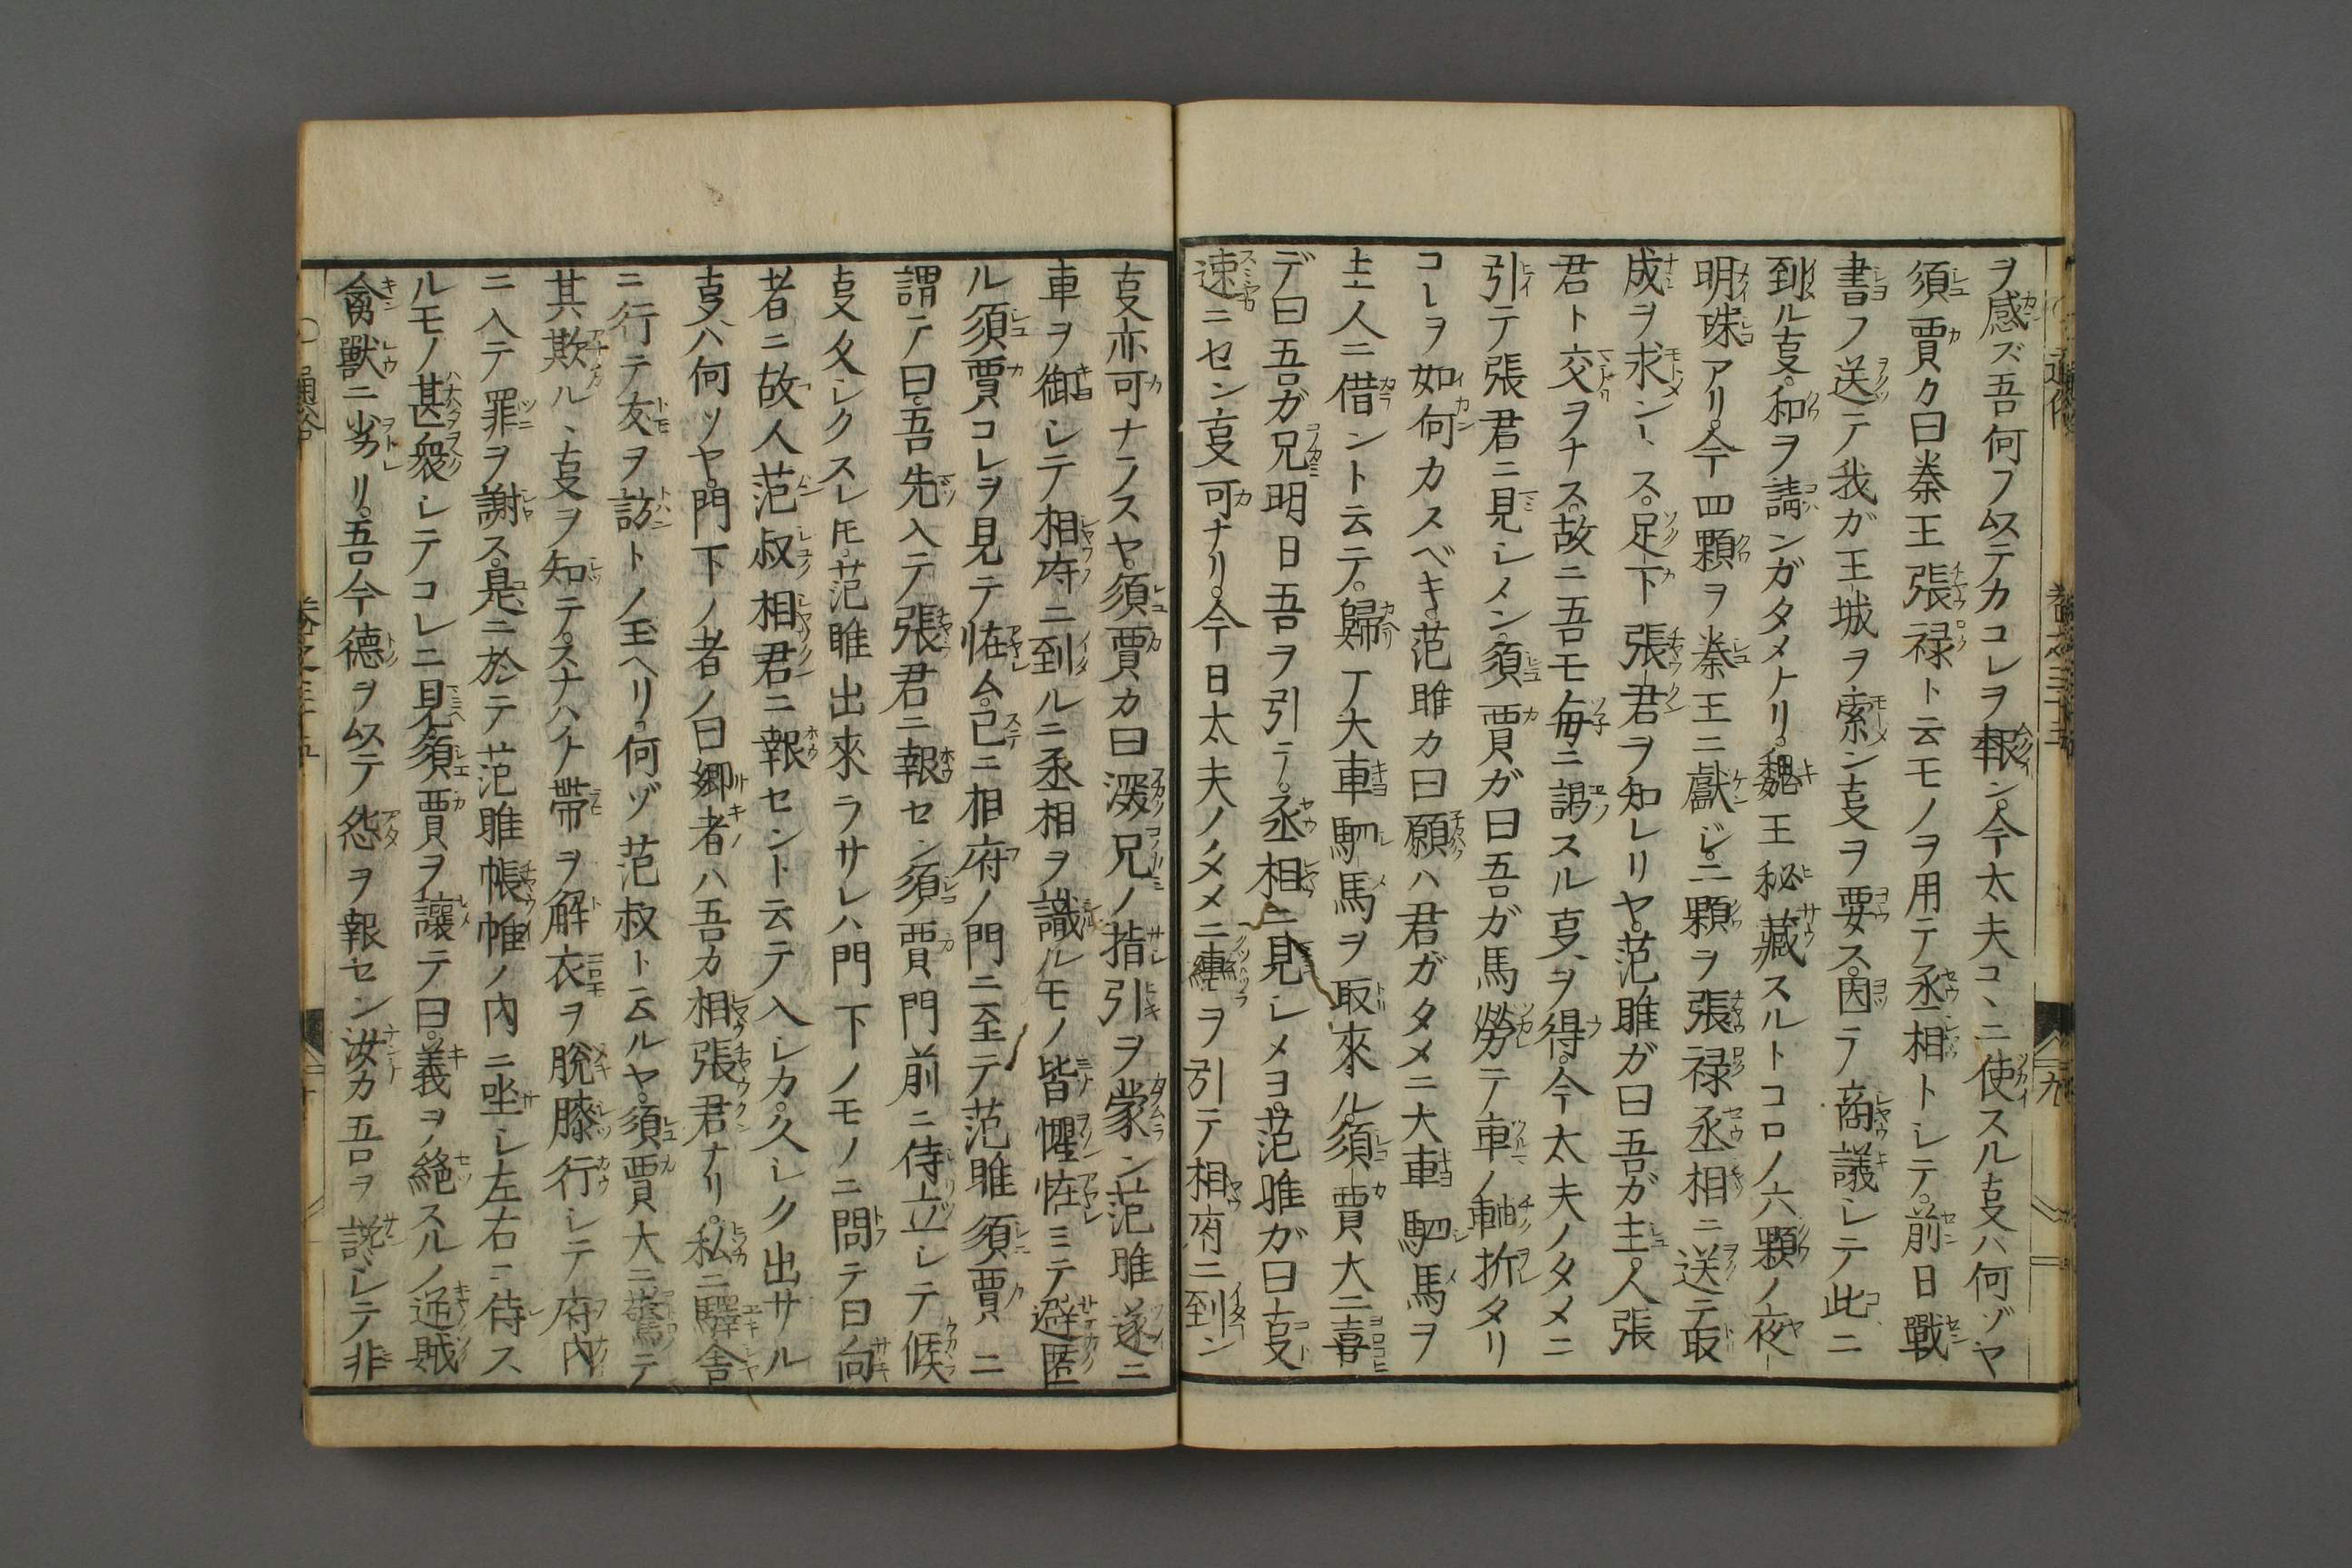 ヲ感ズ吾何フ以テカコレヲ報ン。今太夫コヽニ使スル㕝ハ何ゾヤ
須賈カ曰秦王張禄ト云モノヲ用テ丞相トシテ。前日戰
書フ送テ我ガ王城ヲ索ン㕝ヲ要ス。因テ商議シテ此ニ
到ル㕝。和ヲ請ンガタメナリ。魏王秘藏スルトコロノ六顆ノ夜
明珠アリ。今四顆ヲ秦王ニ獻ジ。二顆ヲ張禄丞相ニ送テ取
成ヲ求ントス。足下張君ヲ知レリヤ。范雎ガ曰吾ガ主人張
君ト交ヲナス。故ニ吾モ毎ニ謁スル㕝ヲ得。今太夫ノタメニ
引テ張君ニ見シメン。須賈ガ曰吾ガ馬勞テ車ノ軸折タリ
コレヲ如何カスベキ。范雎カ曰願ハ君ガタメニ大車駟馬ヲ
主人ニ借ント云テ。歸テ大車駟馬ヲ取來ル。須賈大ニ喜
デ曰吾ガ兄明日吾ヲ引テ。丞相ニ見シメヨ。范雎ガ曰㕝
速ニセン㕝可ナリ。今日太夫ノタメニ轡ヲ引テ相府ニ到ン
㕝亦可ナラスヤ。須賈カ曰深兄ノ指引ヲ蒙ン范雎遂ニ
車ヲ御シテ相府ニ到ルニ丞相ヲ識ルモノ皆懼恠ミテ避匿
ル須賈コレヲ見テ恠ム。已ニ相府ノ門ニ至テ范雎須賈ニ
謂テ曰。吾先入テ張君ニ報セン須賈門前ニ侍立シテ候
㕝久シクスレ𪜈。范雎出來ラサレハ門下ノモノニ問テ曰向
者ニ故人范叔相君ニ報セント云テ入シカ。久シク出サル
㕝ハ何ソヤ。門下ノ者ノ曰郷者ハ吾カ相張君ナリ。私ニ驛舍
ニ行テ友ヲ訪トノ玉ヘリ。何ゾ范叔ト云ルヤ。須賈大ニ驚テ
其欺ルヽ㕝ヲ知テ。スナハチ帶ヲ解衣ヲ脱膝行シテ府内
ニ入テ罪ヲ謝ス。是ニ於テ范雎帳帷ノ内ニ坐シ左右ニ侍ス
ルモノ甚衆シテコレニ見須賈ヲ讓テ曰。義ヲ絶スルノ逆賊
禽獸ニ劣リ。吾今德ヲ以テ怨ヲ報セン汝カ吾ヲ讒シテ非
通俗
卷之三十五
九
通俗
卷之三十五
十